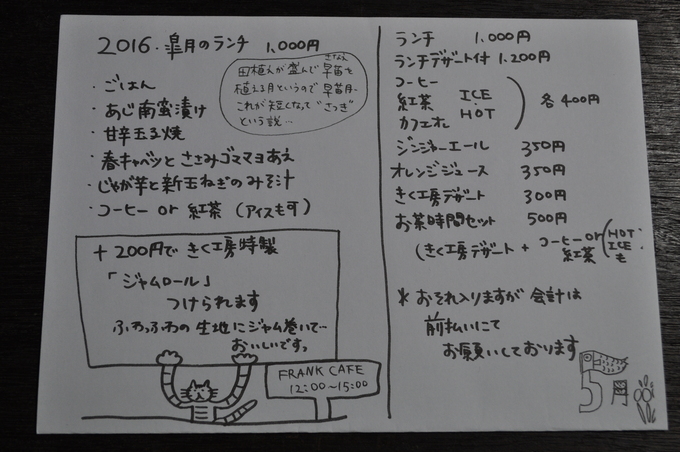 2016.皐月のランチ 1,000円
田植えが盛んで早苗を
さなえ
植える月というので早苗月。
これが短くなって"さつき"
という説...
・ごはん
・あじ南蛮漬け
・甘辛玉子焼
・春キャベツとささみゴママヨあえ
・じゃが芋と新玉ねぎのみそ汁
・コーヒー or 紅茶 (アイスも可)
+200円で きく工房特製
「ジャムロール」
つけられます
ふわっふわの生地にジャム巻いて...
おいしいです。
FRANK CAFE
12:00~15:00
ランチ 1,000円
ランチデザート付 1,200円
コーヒー
紅茶 ICE
カフェオレ HOT
各400円
ジンジャーエール 350円
オレンジジュース 350円
きく工房デザート 300円
お茶時間セット 500円
(きく工房デザート + コーヒー or 紅茶 (HOT ICE も
* おそれ入りますが会計は
前払いにて
お願いしております
5月